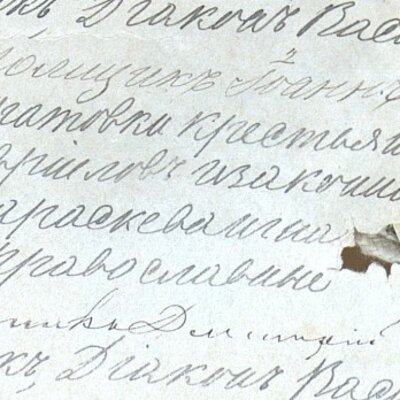 икъ, Діаконъ Вас
омщикъ Іоаннъ
гатовки крестьян
врііловъ и законн
араскева Игна
православные
Дмитрій
къ, Діаконъ Вас